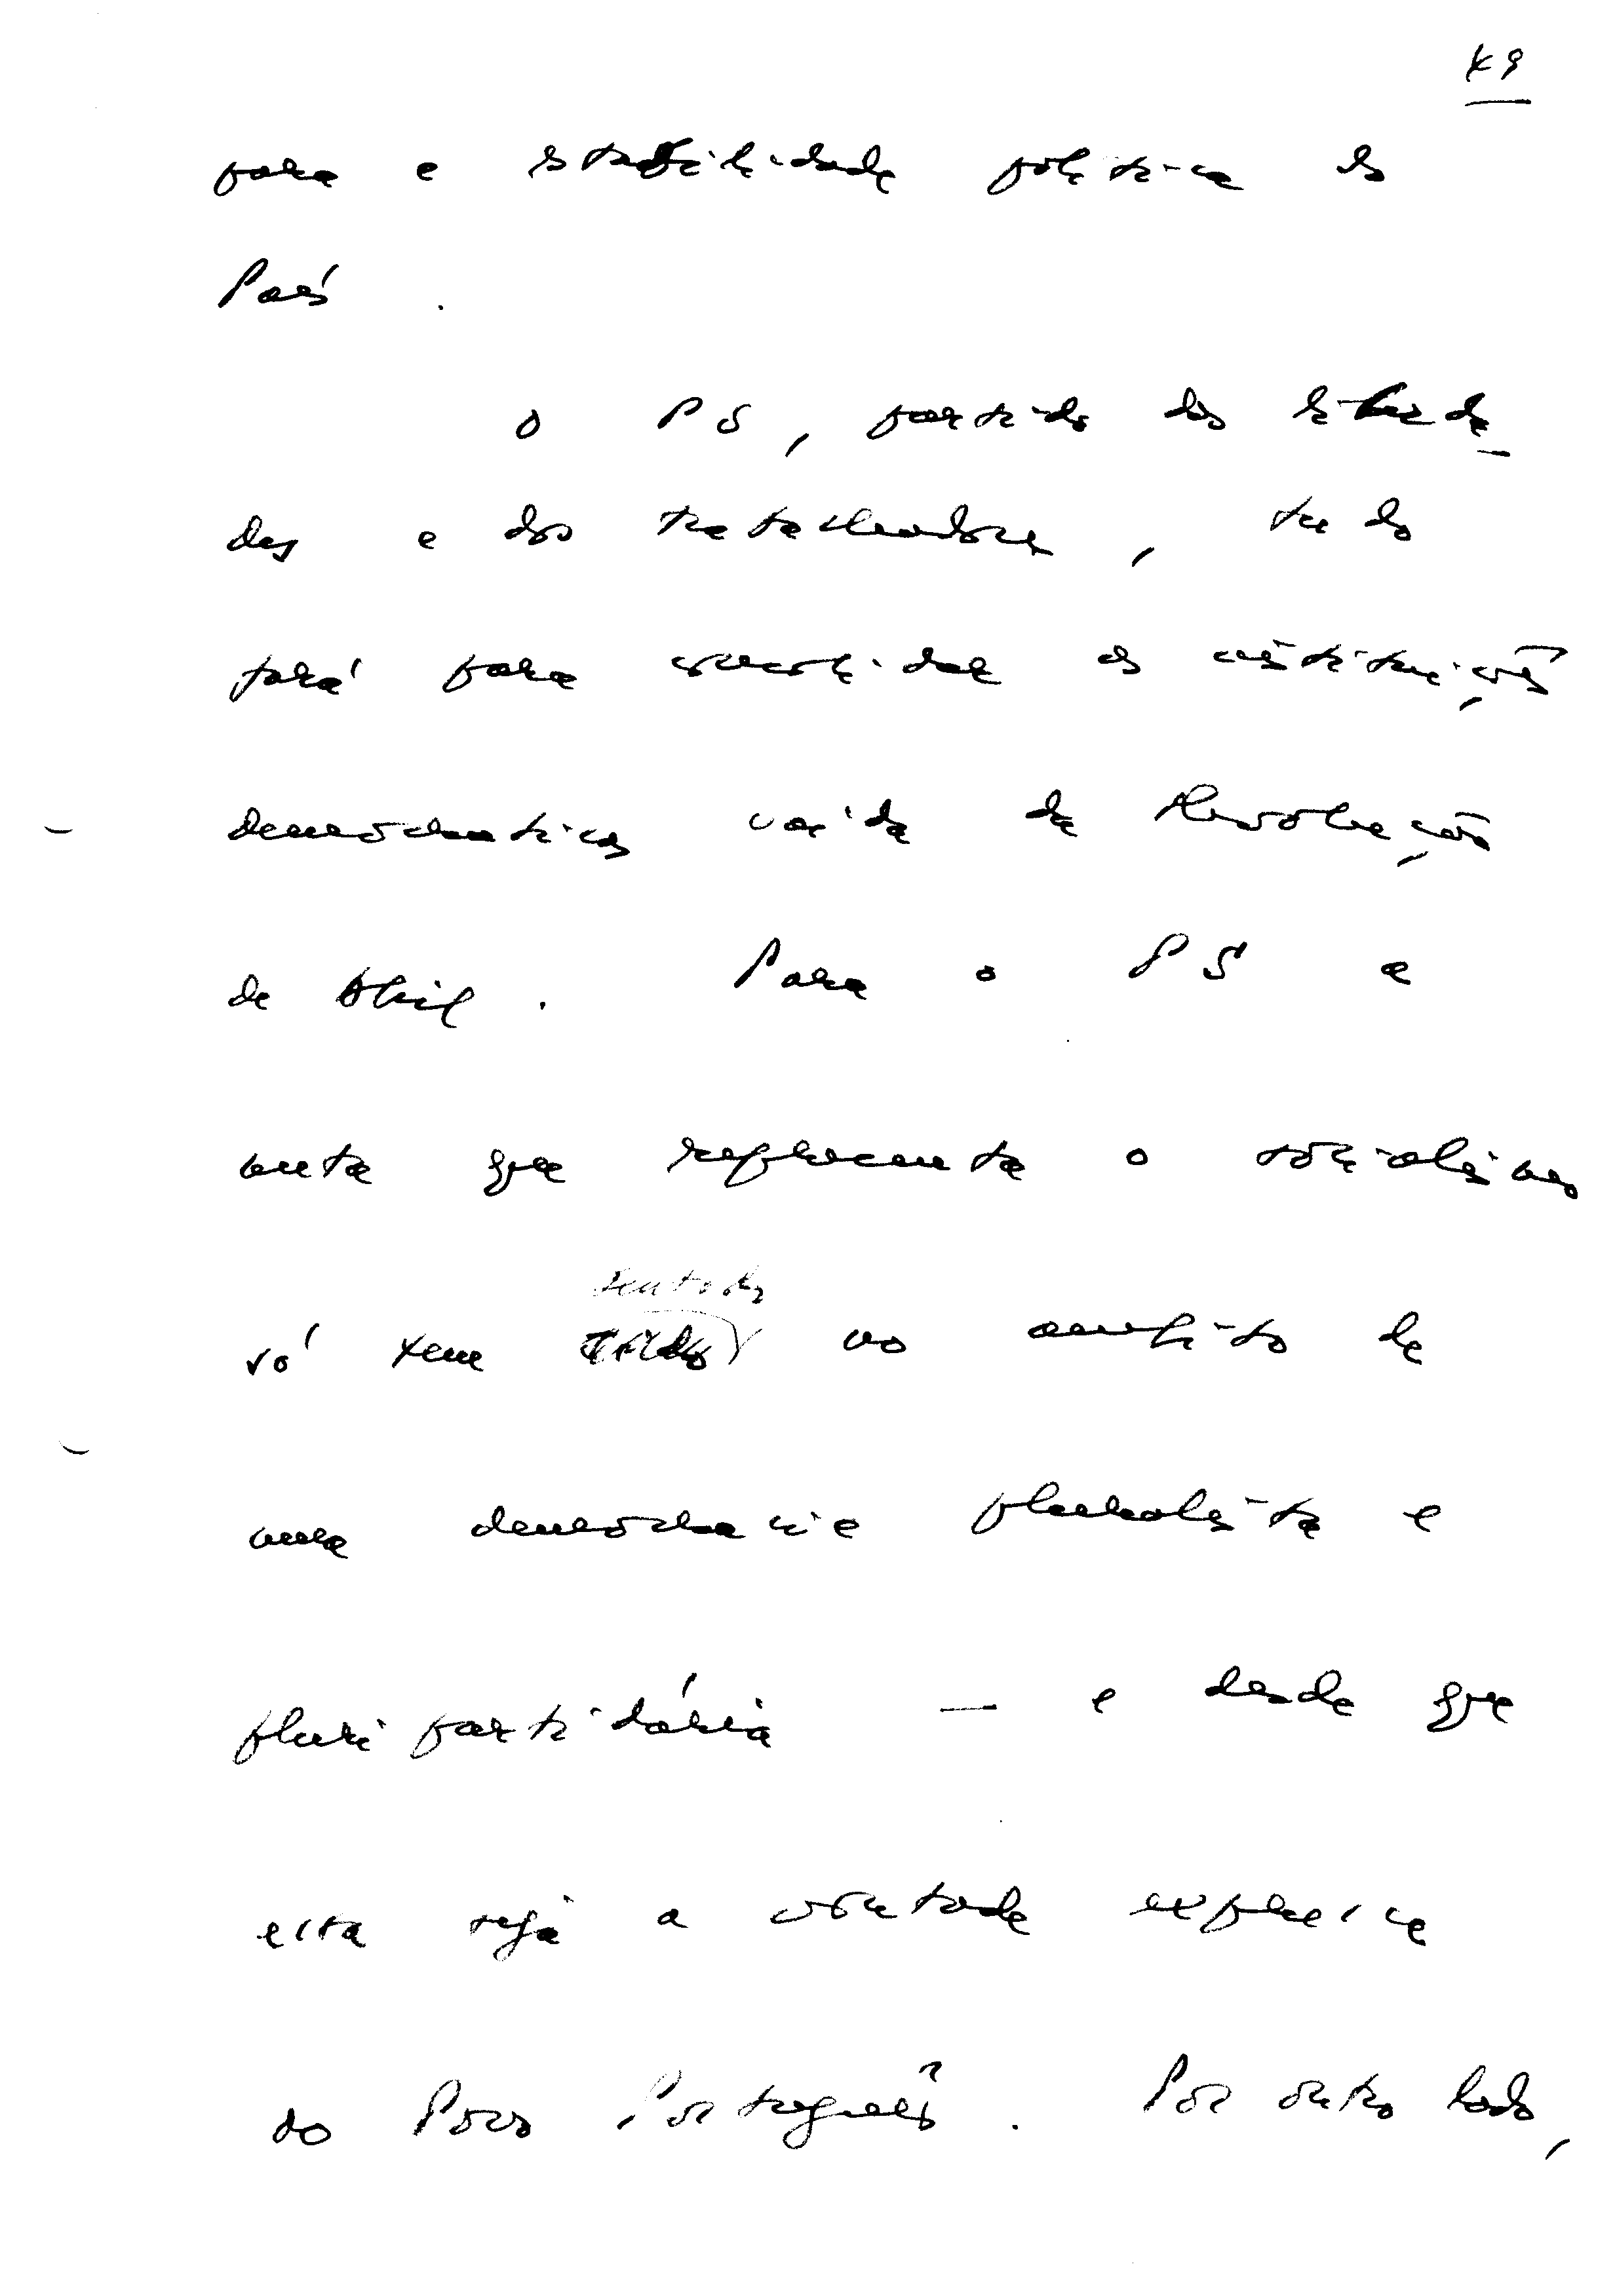 49
para a estabilidade política do
País.
O PS, partido das liberda-
des e dos trabalhadores, tudo
fará para consolidar as instituições
democráticas saídas da Revolução
de Abril. Para o PS a
meta que representa o socialismo
só tem sentido no âmbito de
uma democracia pluralista e
pluripartidária — e desde que
essa seja a vontade expressa
do Povo Português. Por outro lado,